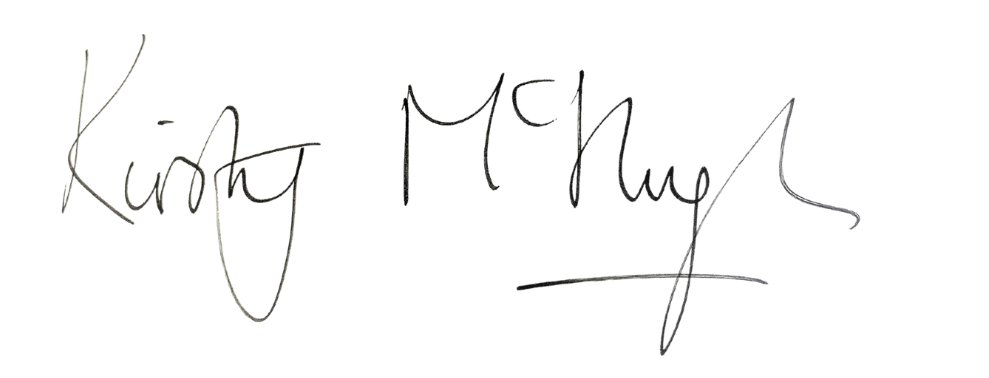 Kirsty McHugh